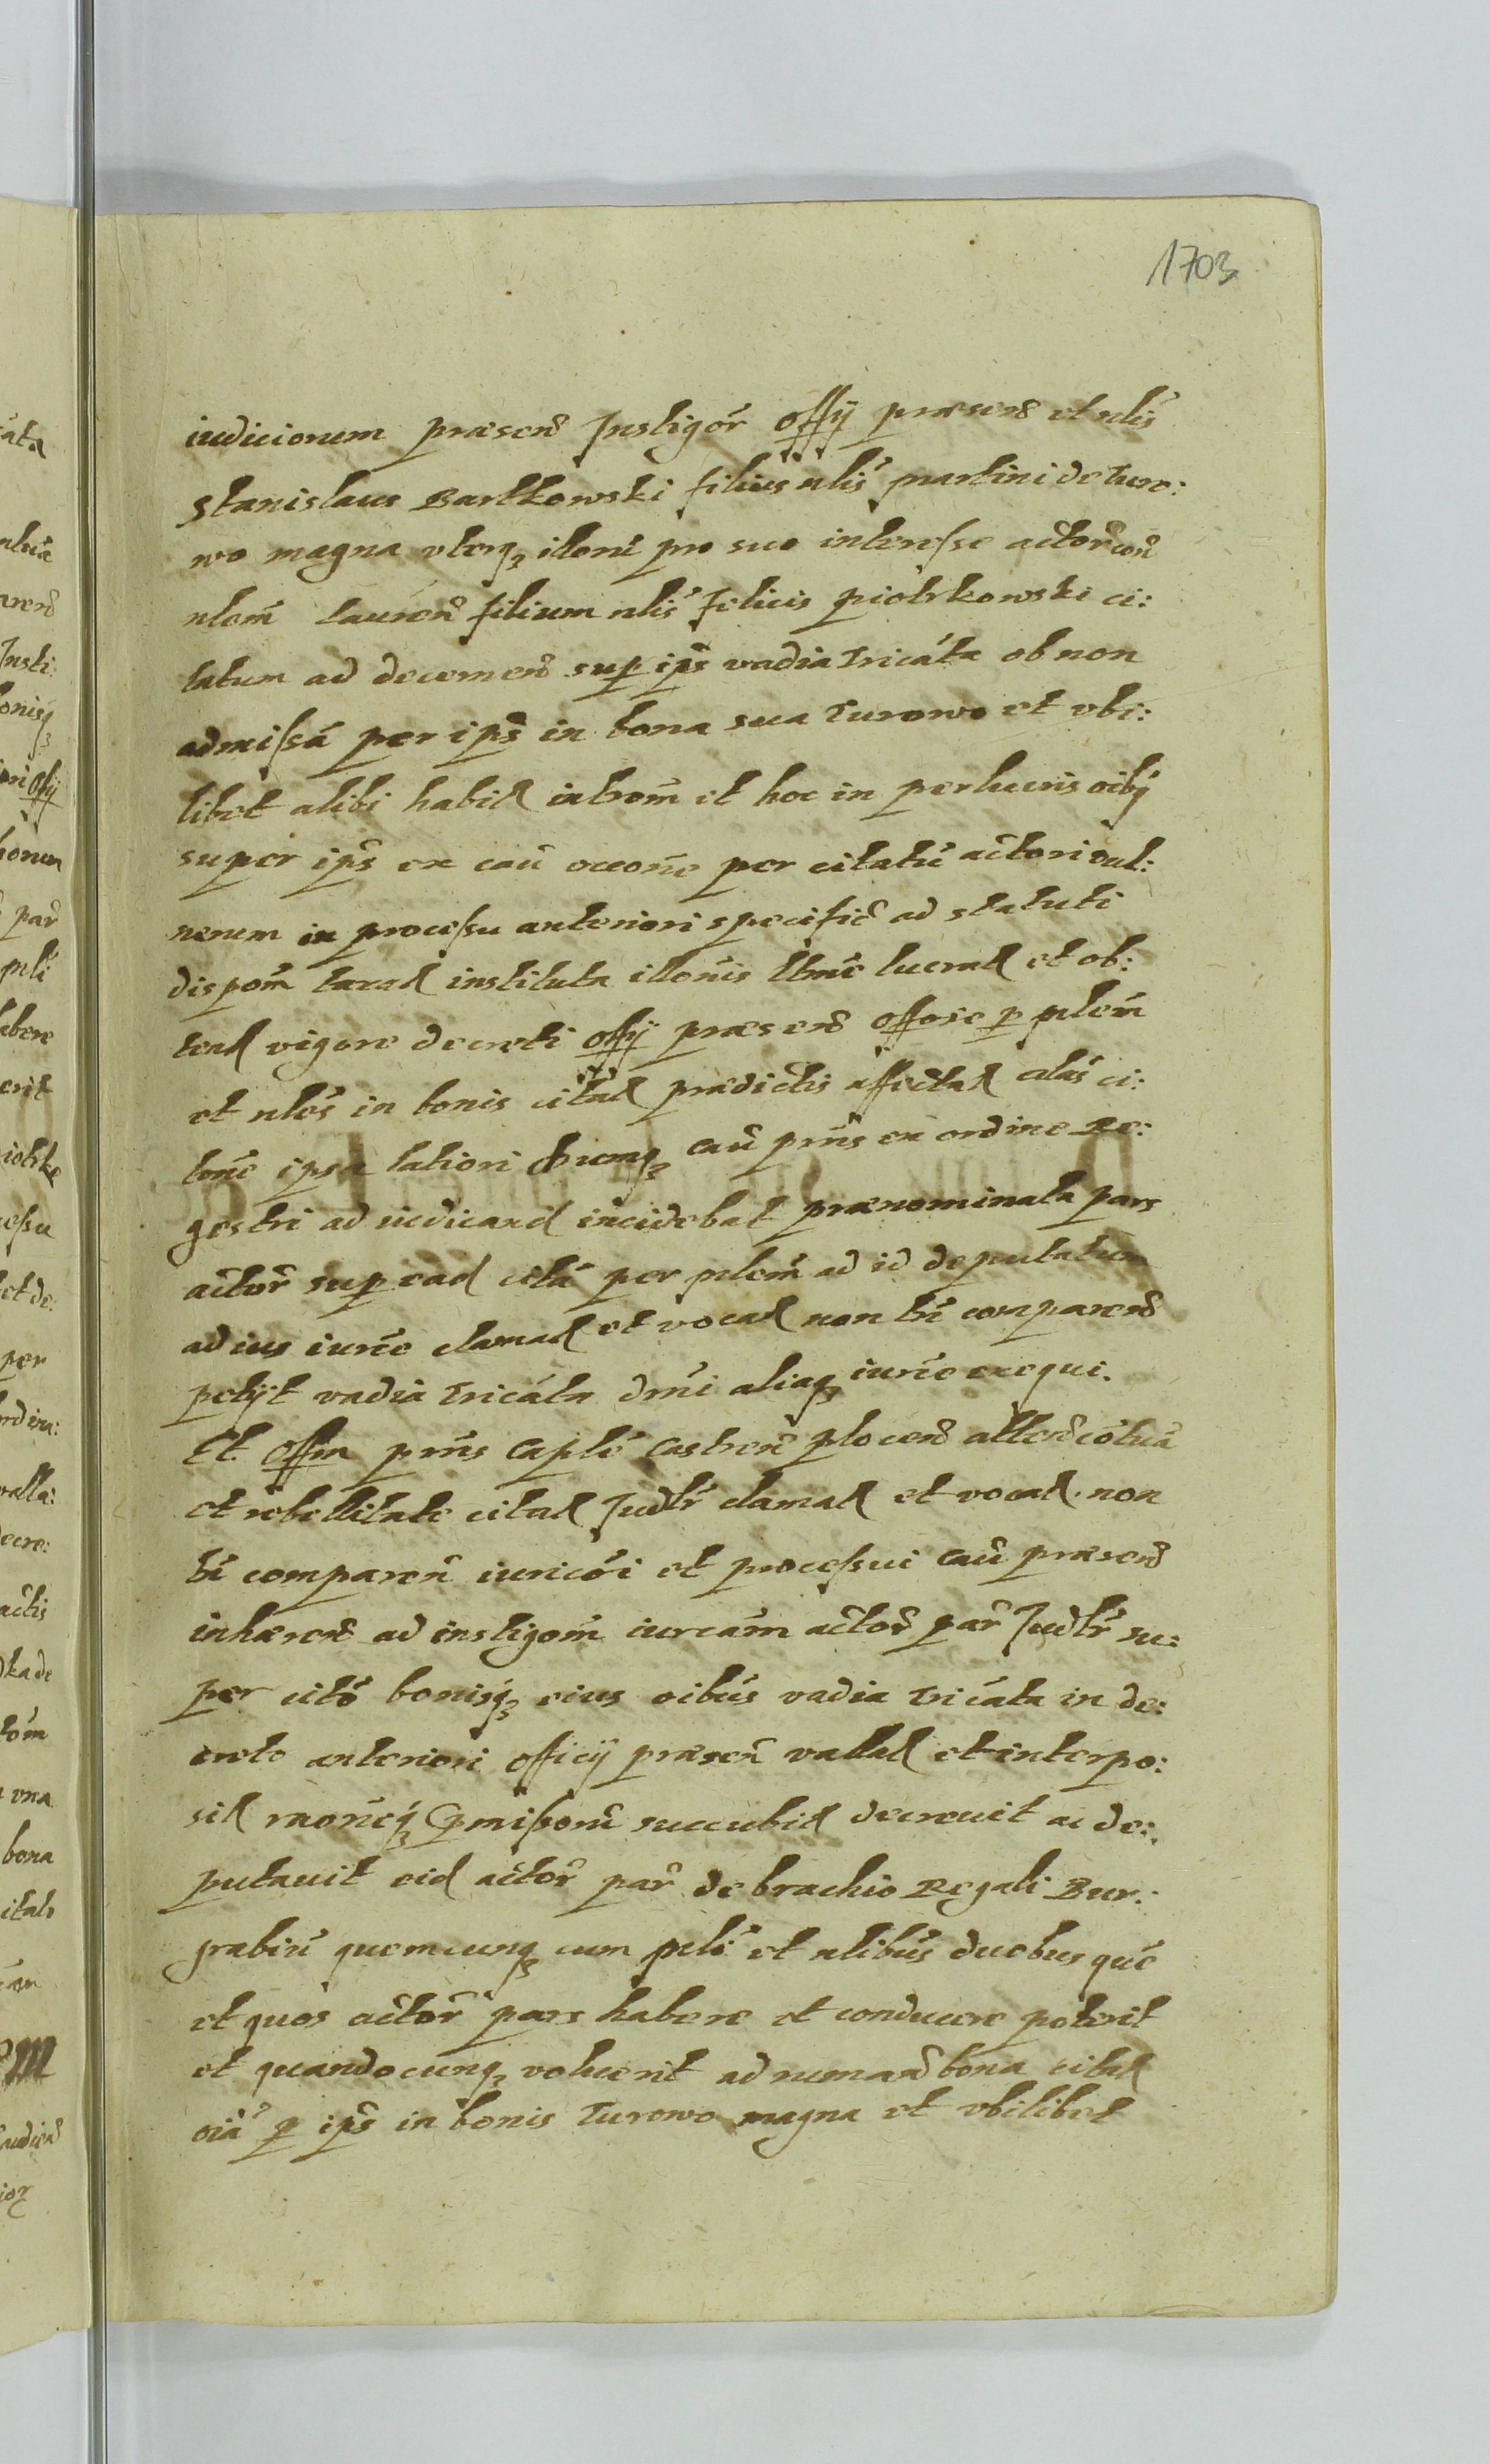 1703
iudiciorum praesen Instigor offij praesen et nlis
Stanislaus Bartkowski filius nlis Martini de Turo:
wo magna vterq itorm pro suo interesse actor con
nlem Lauren filium nlis Felicis Piotrkowski ci:
tatum ad decernen sup ips vadia tricata ob non
admissa per ips in bona sua Turowo et vbi:
libet alibi habit introm et hoc in per lucris oibq
super ips ex cau occone per citatu actori vul:
nerum in processu anteriori specific ad statuti
dispom taxat instituta itionis ltme lucrat et ob:
tent vigore decreti offij praesen offose p plem
et nles in bonis citat praedictis affectat citas ci:
tone ipsa latiori Dumq cau prns ex ordine Re:
gestri ad iudicand incidebat praenominata pars
actor sup ead cita per plem ad id deputatum
ad ius iurie clamat et vocat non tn comparen
petijt vadia tricata dmi aliaq iurie exequi.
Et Offm prns Caple Castren Plocen atten cotua
et rebellitate citat Judtr clamat et vocat non
tn comparen iuricoi et processui cau praesen
inhaeren ad instigom iurcam actor par Judtr su:
per cito bonisq eius oibus vadia tricata in de:
creto anteriori officij praesen vallat et interpo:
sit raoneq pmissorm succubit decreuit ac de:
putauit eid actor par de brachio Regali Bur:
grabiu quemcunq cum pli et nlibus duobus que
et quos actor pars habere et conducere poterit
et quandocunq voluerit ad rumand bona citat
oia p ips in bonis Turowo magna et vbilibet